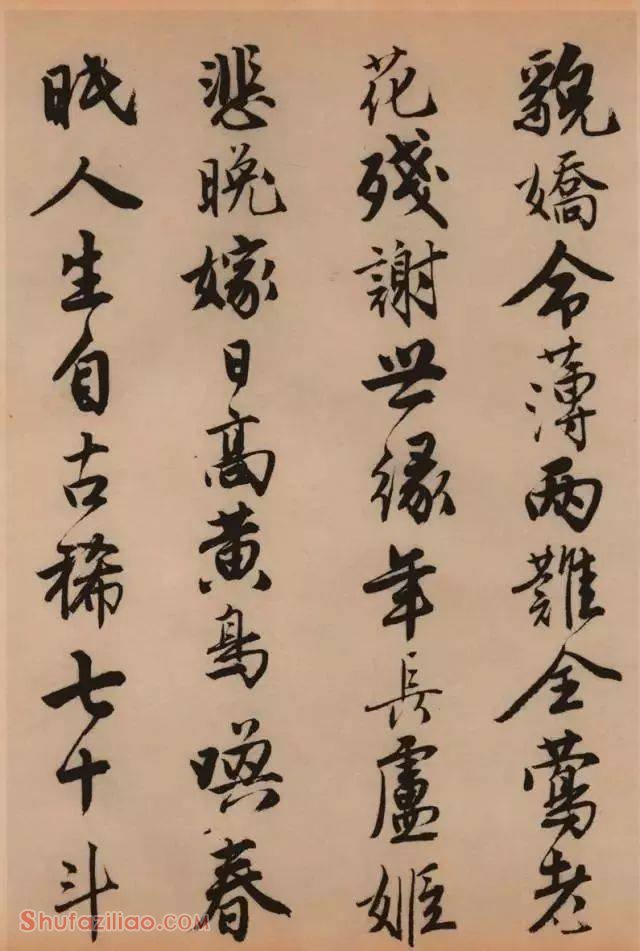 貌嬌命薄两難全鶯老
花殘謝世緣年長盧姬
悲晚嫁日高黄鳥喚春
眠人生自古稀七十斗
Shufaziliao.COM